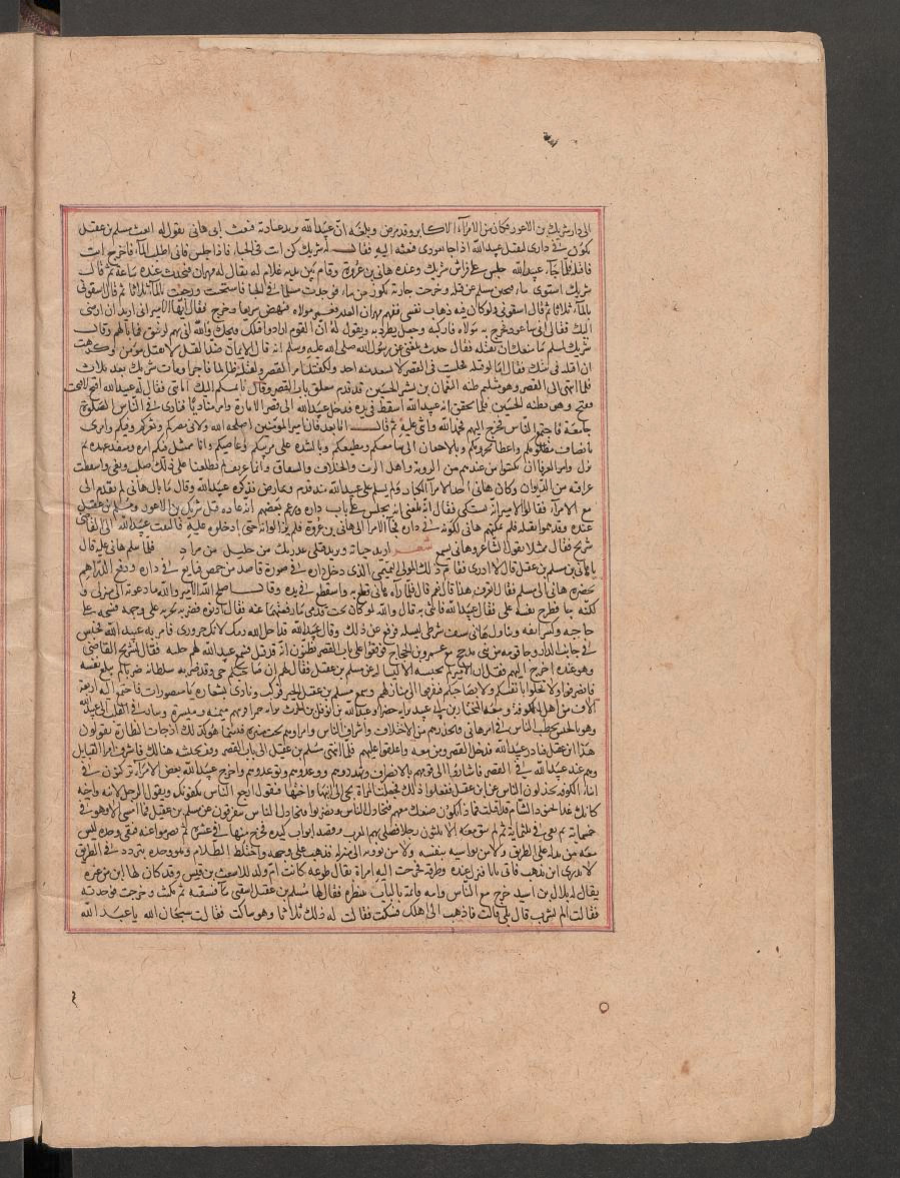 الى دار شريك بن الاعور وكان من الامرآء الاكابر وقد مرض وبلغه ان عبيد الله يريد عيادته فبعث الى هاني يقول له ابعث مسلم بن عقيل
يكون في داري لقتل عبيد الله اذا جا يعودني فبعثه اليه فقال له شريك كن انت في الخبا فاذا جلس فاني اطلب الماء فاخرج انت
فاقتله فلما جآء عبيد الله جلس على فراش شريك وعنده هاني بن عروة وقام بين يديه غلام له يقال له مهران فتحدث عنده ساعة ثم قال
شريك اسقوني ماء فجبن مسلم عن قتله وخرجت جارية بكوز من ماء فوجدت مسلما في الخبا فاستحيت ورجعت بالماء ثلاثا ثم قال اسقوني
بالماء ثلاثا ثم قال اسقوني ولو كان فيه ذهاب نفسي ففهم مهران الغدر فغمز مولاه فنهض سريعا وخرج فقال ايها الامير اني اريد ان اوصي
اليك فقال اني ساعود وخرج به مولاه فاركبه وجعل يطرد به ويقول له ان القوم ارادوا قتلك فقال ويحك والله اني بهم لرفيق فما بالهم وقال
شريك لمسلم ما منعك ان تقتله فقال حديث بلغني عن رسول الله صلى الله عليه وسلم انه قال الايمان ضد الفتك لا يفتك مؤمن وكرهت
ان اقتله في بيتك فقال اما لو قتلته لجلست في القصر لا يستعد منه احد ولكفيتك امر البصرة ولقتلته ظالما فاجرا ومات شريك بعد ثلاث
فلما انتهى الى القصر وهو متلثم ظنه النعمان بن بشير الحسين قد قدم فغلق باب القصر وقال ما بمسلم اليك امانتي فقال له عبيد الله افتح لا فتحت
ففتح وهو يظنه الحسين فلما تحقق انه عبيد الله اسقط في يده فدخل عبيد الله الى قصر الامارة وامر مناديا فنادى في الناس الصلوة
جامعة فاجتمع الناس فخرج اليهم فحمد الله واثنى عليه ثم قال اما بعد فان امير المؤمنين اصلحه الله ولاني مصركم وثغركم وفيئكم وامرني
بانصاف مظلومكم واعطا محرومكم وبالاحسان الى سامعكم ومطيعكم وبالشدة على مريبكم وعاصيكم وانا ممتثل فيكم امره ومنفذ عهده ثم
نزل وامر العرفا ان يكتبوا من عندهم من الزورية واهل الريب والخلاف والشقاق وايما عريف لم يطلعنا على ذلك صلب ونفي واسقطت
عرافته من الديوان وكان هاني احد الامرآء الكبار ولم يسلم على عبيد الله منذ قدم وتمارض فذكره عبيد الله وقال ما بال هاني لم يقدم الي
مع الامرآء فقالوا ايها الامير انه يشتكي فقال انه بلغني انه يجلس على باب داره وزعم بعضهم انه عاده قبل شريك بن الاعور ومسلم بن عقيل
عنده وقد هموا بقتله فلم يمكنهم هاني لكونه في داره فجآء الامرآء الى هاني بن عروة فلم يزالوا به حتى ادخلوه عليه فالتفت عبيد الله الى القاضي
شريح فقال متمثلا بقول الشاعر وهاني يسمع شعر اريد حياته ويريد قتلي عذيرك من خليل من مراد فلما سلم هاني عليه قال
يا هاني اين مسلم بن عقيل قال لا ادري فقام ذلك المولى التميمي الذي دخل داره في صورة قاصد من حمص فبايع في داره ودفع الدراهم
بحضرة هاني الى مسلم فقال اتعرف هذا قال نعم قال فلما رآه هاني قطع به واسقط في يده وقال اصلح الله الامير والله ما دعوته الى منزلي و
لكنه جآء فطرح نفسه علي فقال عبيد الله فاتني به قال والله لو كان تحت قدمي ما رفعتهما عنه فقال ادنوه فضربه بحربة على وجهه فشجه على
حاجبه وكسر انفه وتناول هاني سيف شرطي ليسله فدفع عن ذلك وقال عبيد الله قد احل الله دمك لانك حروري فامر به عبيد الله فحبس
في جانب الدار وجا قومه من بني مذحج مع عمرو بن الحجاج فوقفوا على باب القصر يظنون انه قد قتل فسمع عبيد الله لهم جلبه فقال لشريح القاضي
وهو عنده اخرج اليهم فقل ان الامير لم يحبسه الا ليساله عن مسلم بن عقيل فقال لهم ان صاحبكم حي وقد ضربه سلطانه ضربا لم يبلغ نفسه
فانصرفوا ولا تحلوا بانفسكم ولا بصاحبكم فتفرقوا الى منازلهم وسمع مسلم بن عقيل الخبر فركب ونادى بشعاره يا منصور امت فاجتمع اليه اربعة
آلاف من اهل الكوفة ومعه المختار بن ابي عبيد براية خضرا وعبد الله بن نوفل بن الحرث براية حمرا ورتبهم ميمنة وميسرة وسار في القلب الى عبيد الله
وهو يخطب الناس في امر هاني ويحذرهم من الاختلاف واشراف الناس وامراوهم تحت منبره فبينما هو كذلك اذ جات النظارة يقولون
هذا ابن عقيل فبادر عبيد الله فدخل القصر ومن معه واغلقوا عليهم فلما انتهى مسلم بن عقيل الى باب القصر وقف بجيشه هنالك فاشرف امرا القبايل
وهم عند عبيد الله في القصر فاشاروا الى قومهم بالانصراف وتهددوهم ووعدوهم وتوعدوهم واخرج عبيد الله بعض الامرآء يركبون في
انحاء الكوفه يخذلون الناس عن ابن عقيل ففعلوا ذلك فجعلت المراة تجي الى ابنها واخيها فتقول ارجع الناس يكفونك ويقول الرجل لابنه واخيه
كانك غدا بجنود الشام قد اقبلت فماذا يكون صنيعك معهم فتخاذل الناس وتصرموا وتخاذل الناس يتفرقون عن مسلم بن عقيل فما امسى الا وهو في
خمسماية ثم بقي في ثلثماية ثم لم يبق معه الا ثلثون رجلا فصلى بهم المغرب وقصد ابواب كنده فخرج منها في عشرة ثم انصرفوا عنه فبقي وحده ليس
معه من يدله على الطريق ولا من يواسيه بنفسه ولا من يؤويه الى منزله فذهب على وجهه واختلط الظلام وهو وحده يتردد في الطريق
لا يدري اين يذهب فاتى بابا فنزل عنده وطرقه فخرجت اليه امراة يقال طوعه كانت ام ولد للاشعث بن قيس وقد كان لها ابن من غيره
يقال له بلال بن اسيد خرج مع الناس وامه قايمة بالباب تنتظره فقال لها مسلم بن عقيل اسقني ماء فسقته ثم مكث وخرجت فوجدته
فقالت الم تشرب قال بلى قالت فاذهب الى اهلك فسكت فقالت له ذلك ثلاثا وهو ساكت فقالت سبحان الله يا عبد الله